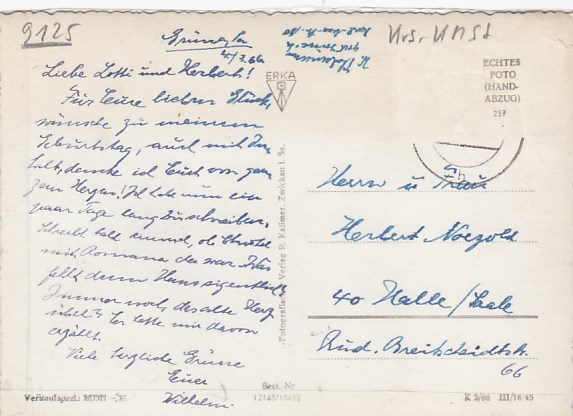 9125
Grüna, den
4/3.66
Liebe Lotti und Herbert!
Für Eure lieben Glück-
wünsche zu meinem
Geburtstag, auch mit In-
halt, danke ich Euch von gan-
zem Herzen! Ich habe nun ein
paar Tage lang zu schreiben.
Schreibt bald einmal, ob
mit Romana da war. Was
fehlt denn Hans eigentlich?
Immer noch das alte Herz-
übel? Er hatte mir davon
erzählt.
Viele herzliche Grüsse
Euer
Wilhelm
ERKA
Fotografischer Verlag R. Kallmer, Zwickau i. Sa.
ECHTES
FOTO
(HAND-
ABZUG)
257
Herrn u Frau
Herbert Noezold
40 Halle/Saale
Rud. Breitscheidtstr.
66
Best.-Nr
K 3/66 III/18/45